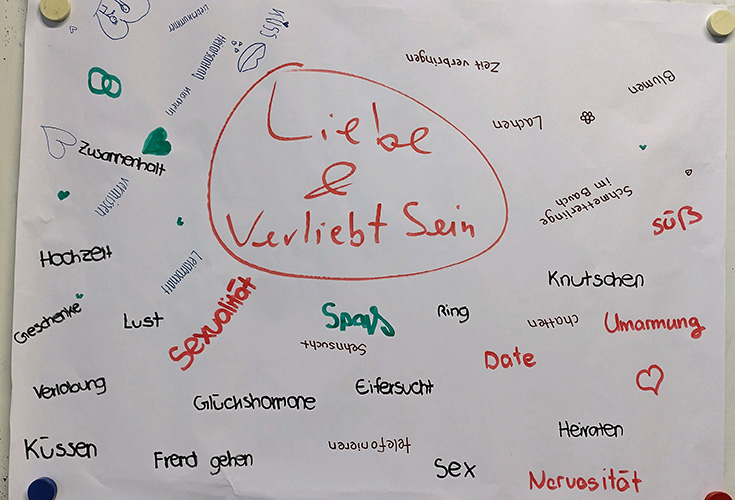 Liebeskummer
KUSS
Zeit verbringen
Blumen
Kuscheln
Lachen
Liebe
&
Verliebt Sein
Zusammenhalt
vermissen
Schmetterlinge
im Bauch
süß
Hochzeit
Leidenschaft
Knutschen
Geschenke
Lust
Sexualität
Spaß
Ring
chatten
Umarmung
Sehnsucht
Date
Verlobung
Glückshormone
Eifersucht
Heiraten
Küssen
Fremd gehen
telefonieren
Sex
Nervosität